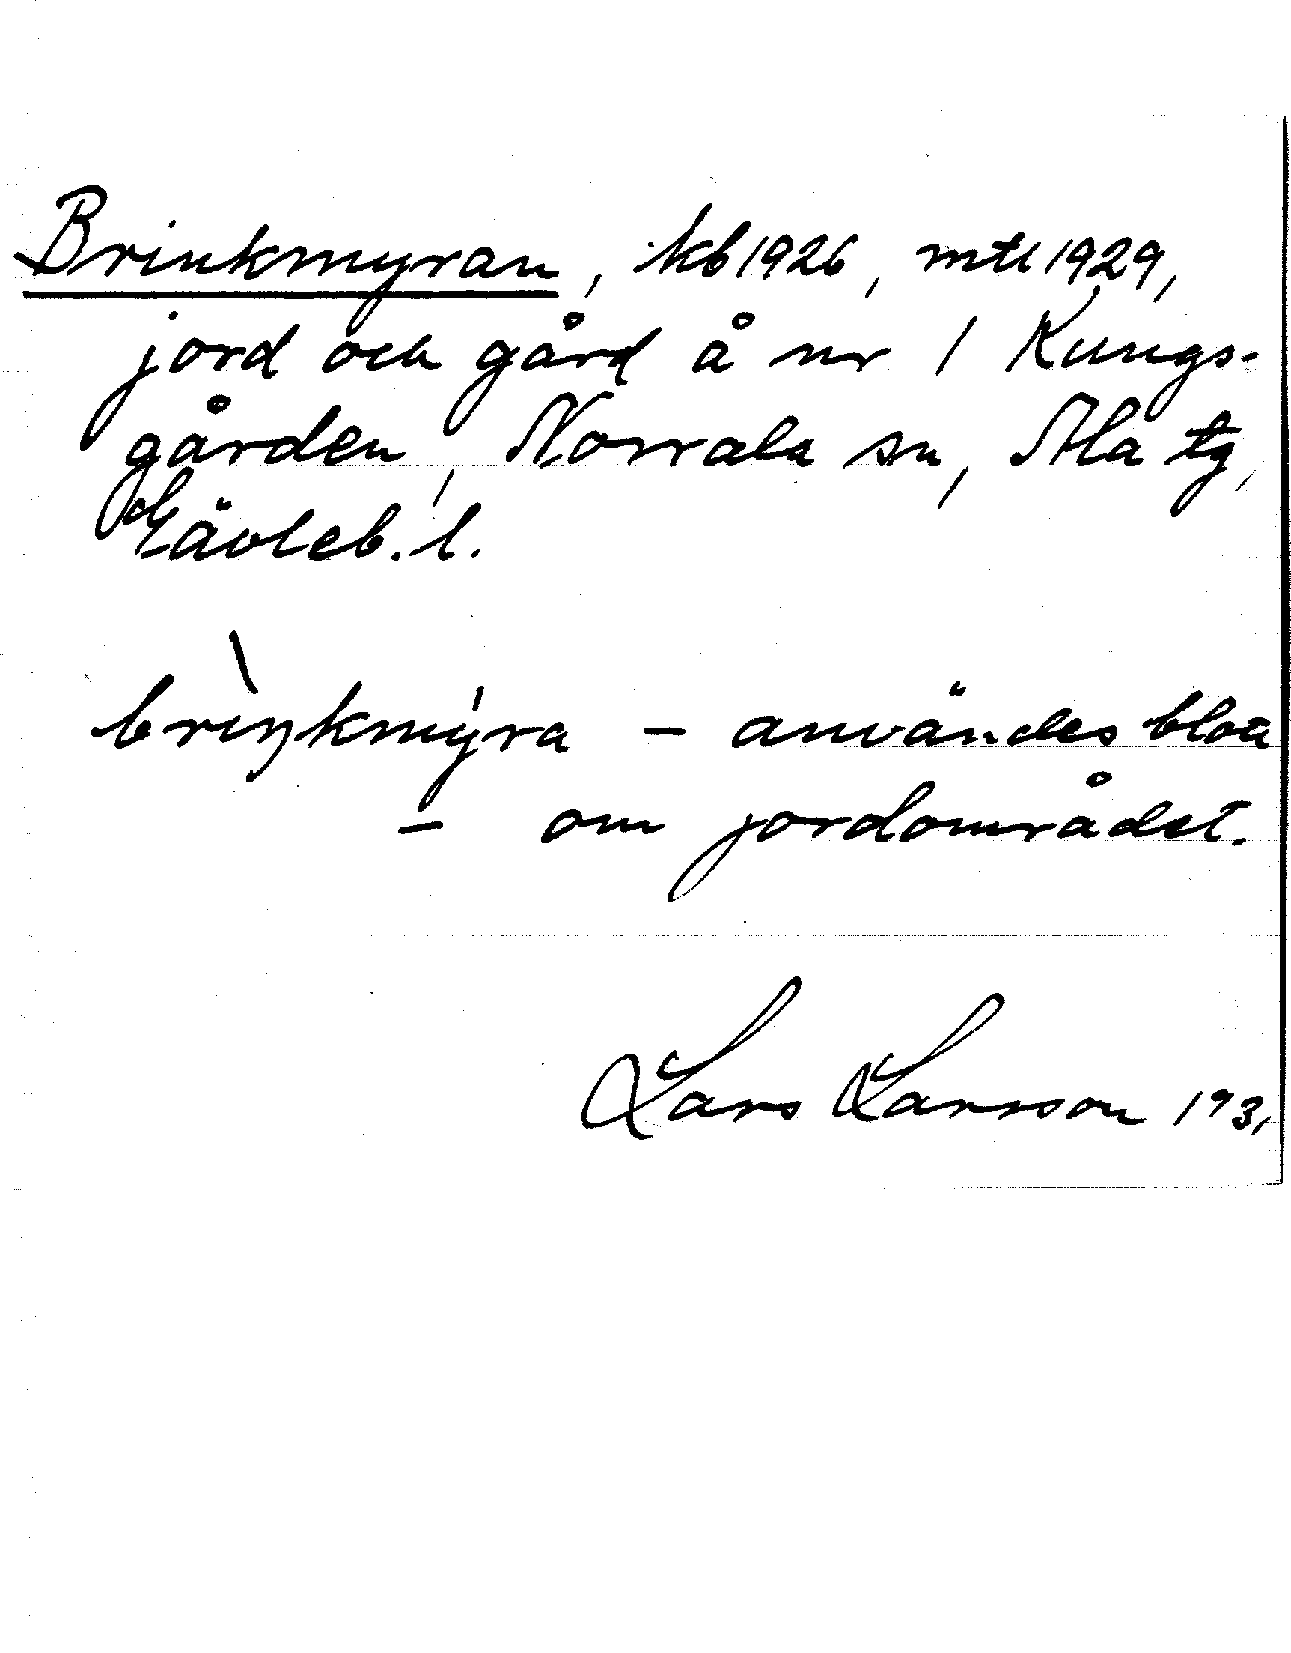 Brinkmyran, kb 1926, mtl 1929,
jord och gård å nr 1 Kungs-
gården, Norrala sn, Ala tg,
Gävleb. l.
brìŋkmýra - användes blott
- om jordområdet.
Lars Larsson 193